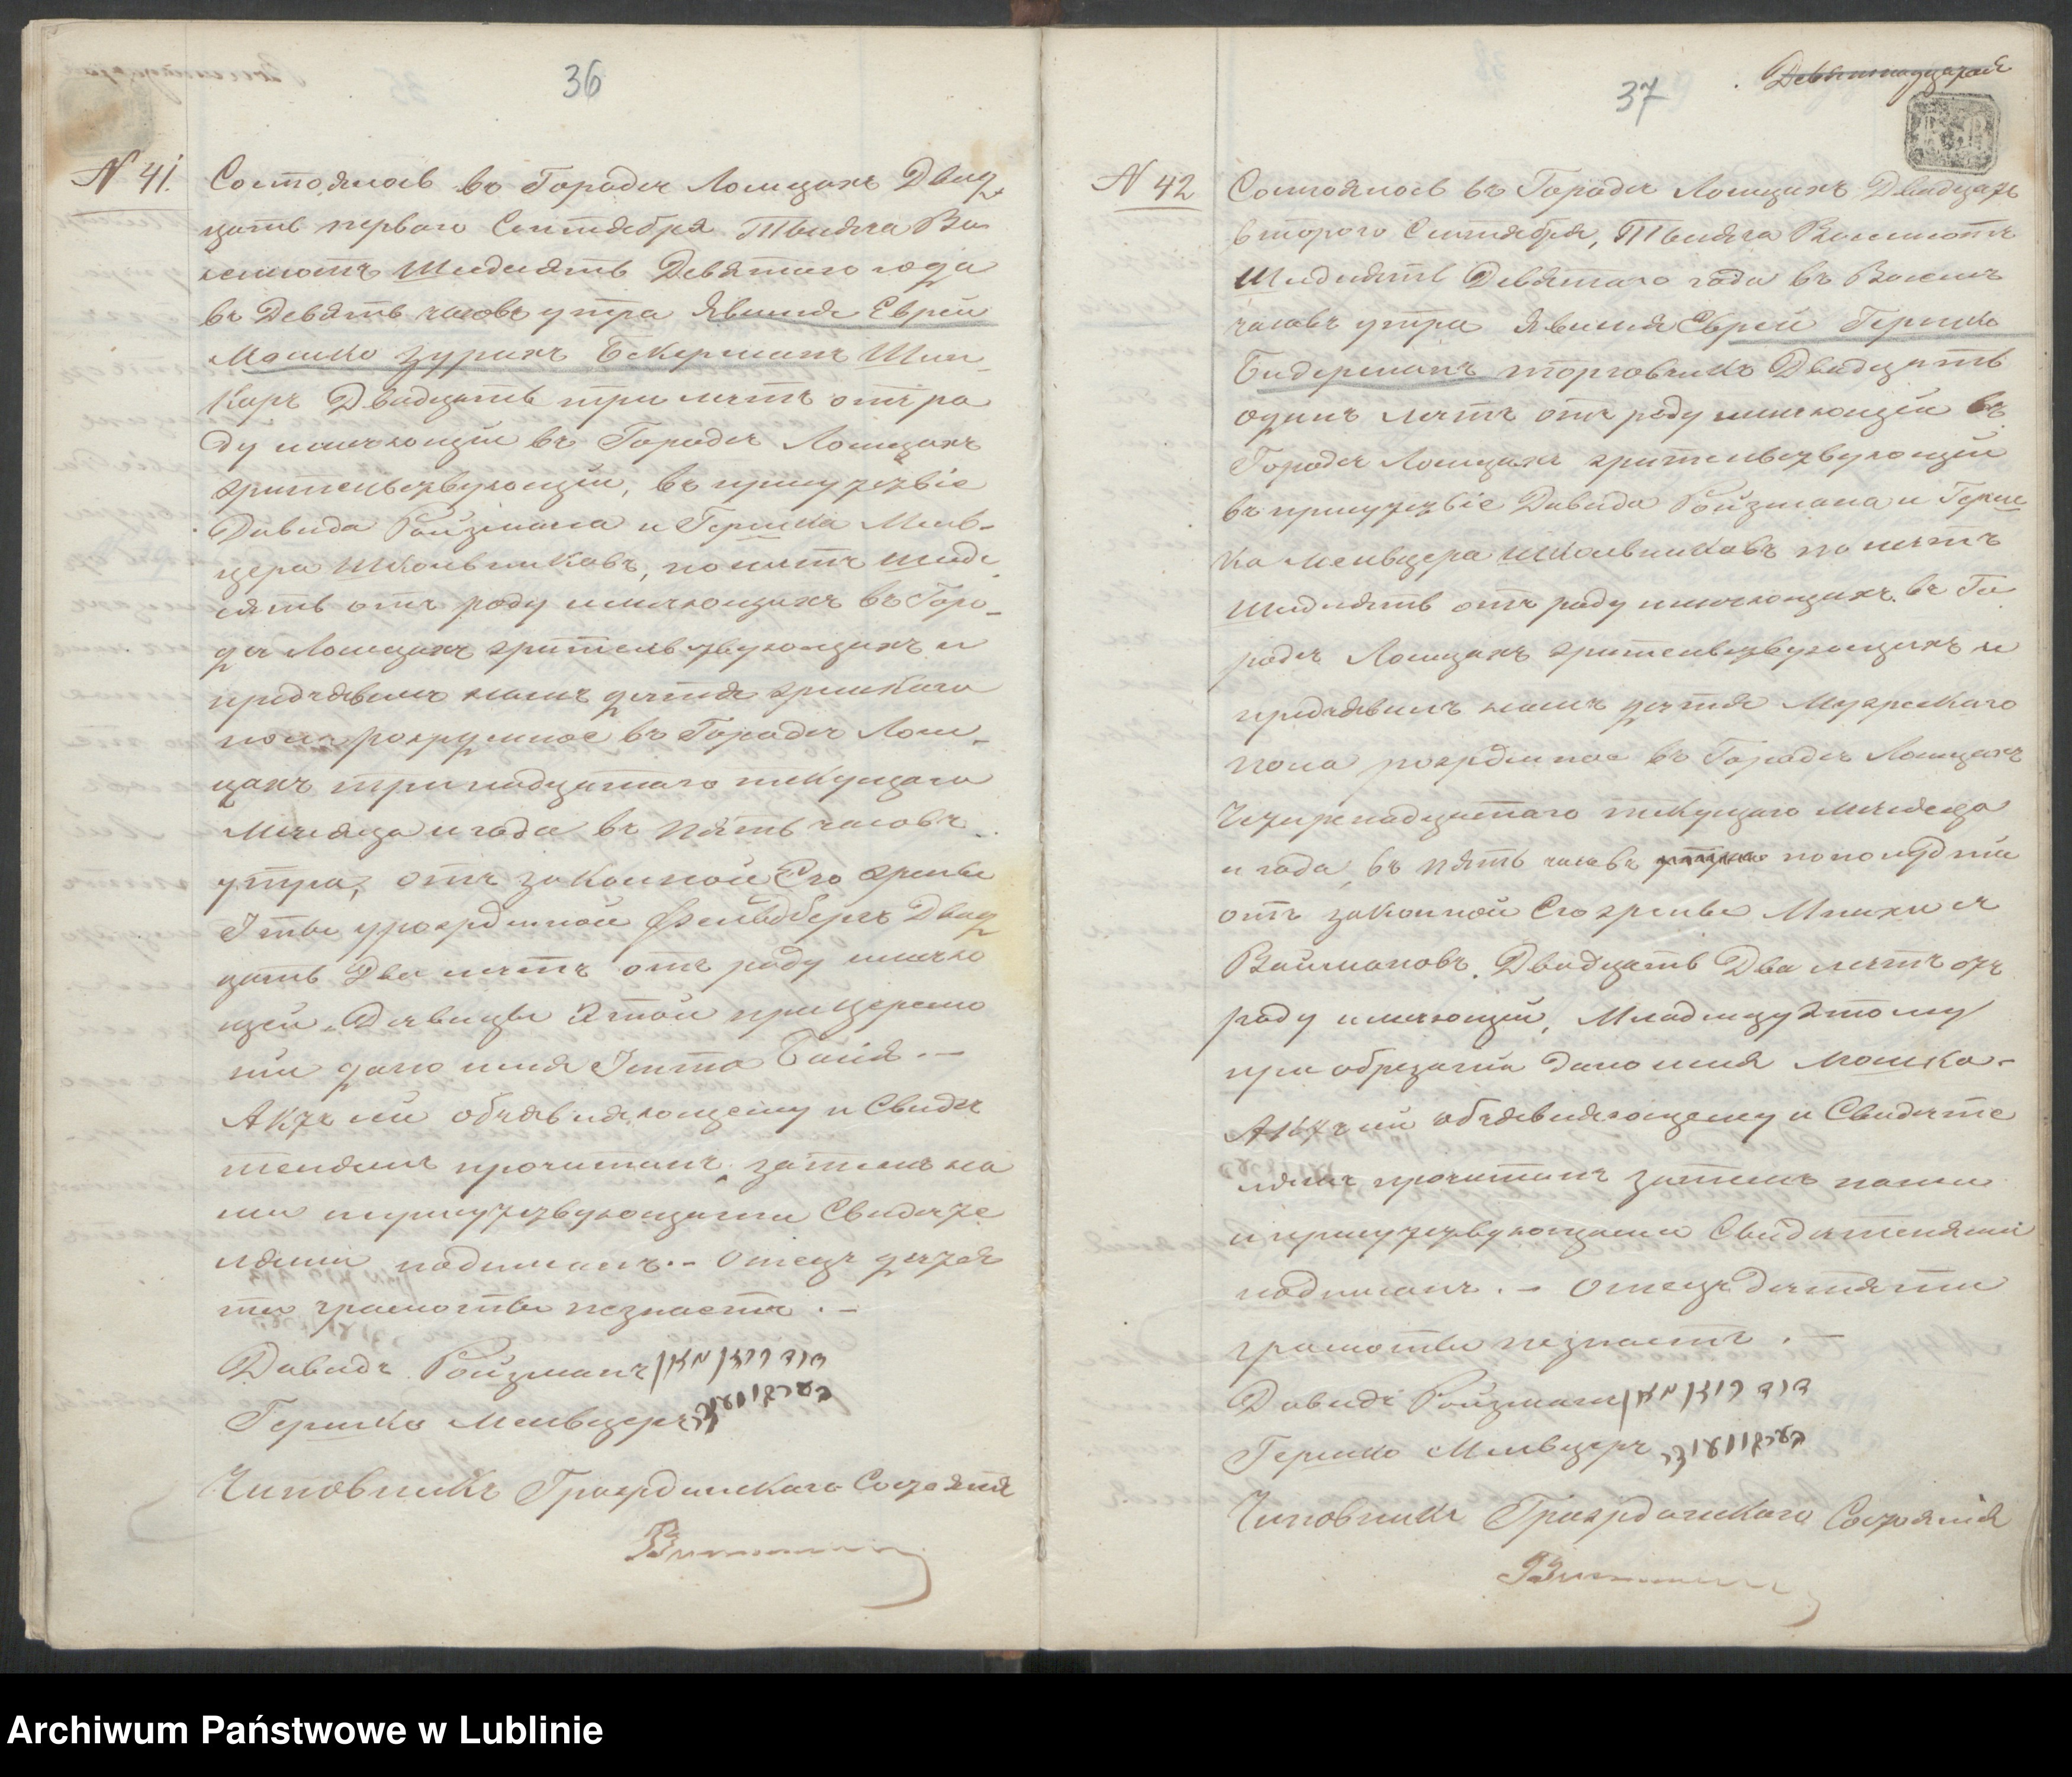 36
N 41.
Состоялось въ Городѣ Ломазахъ Двад
цать перваго Сентября Тысяча Во
семьсотъ Шесдесятъ Девятаго года
въ Девять часовъ утра Явился Еврей
Мошко Бекерманъ
Каръ Двадцать три лѣтъ отъ ро
ду имѣющій въ Городѣ Ломазахъ
жительствующій, въ присутствіе
Давида Ройзмана и Гершка Мель-
цера Школьниковъ, по лѣтъ шесде
сятъ отъ роду имѣющихъ въ Горо-
дѣ Ломазахъ жительствующихъ и
предъявилъ намъ дѣтя женскаго
пола рожденное въ Городѣ Лома-
захъ тринадцатаго текущаго
Мѣсяца и года въ пять часовъ
утра, отъ законной Его жены
Иты урожденной Фельдбергъ Двад
цать два лѣтъ отъ роду имѣю
щей. Дѣвицы этой при церемо
ніи дано имя Итта Бася.-
Актъ сій объявляющему и Свидѣ
телямъ прочитанъ, затемъ на
ми и присутствующими Свидѣте
лями подписанъ.- Отецъ дѣтя
ти грамоты незнаетъ.-
Давидъ Ройзманъ דוד רויזמאן
Гершко Мельцеръ
Чиновникъ Гражданскаго Состоянія
37
Девятнадцатый
N 42
Состоялось въ Городѣ Ломазахъ Двадцать
втораго Сентября, Тысяча Восемсотъ
Шесдесятъ Девятаго года въ Восемь
часовъ утра явился Еврей Гершко
Бидерманъ торговникъ Двадцать
одинъ лѣтъ отъ роду имѣющій въ
Городѣ Ломазахъ жительствующій
въ присутствіе Давида Ройзмана и Герш
ка Мельцера школьниковъ по лѣтъ
Шесдесятъ отъ роду имѣющихъ въ Го
родѣ Ломазахъ жительствующихъ и
предъявилъ намъ дѣтя Мужескаго
пола рожденное въ Городѣ Ломазахъ
Четырнадцатаго текущаго мѣсяца
и года, въ пять часовъ утра пополудни
отъ законной Его жены
Ваймановъ, Двадцать Два лѣтъ отъ
роду имѣющій, Младенцу этому
при обрезаніи дано имя Мошко.-
Актъ сій объявляющему и Свидѣте
лямъ прочитанъ затемъ нами
и присутствующими Свидѣтелями
подписанъ.- Отецъ Дѣтяти
грамоты незнаетъ.-
Давидъ Ройзманъ דוד רויזמאן
Гершко Мельцеръ
Чиновникъ Гражданскаго Состоянія
Archiwum Państwowe w Lublinie